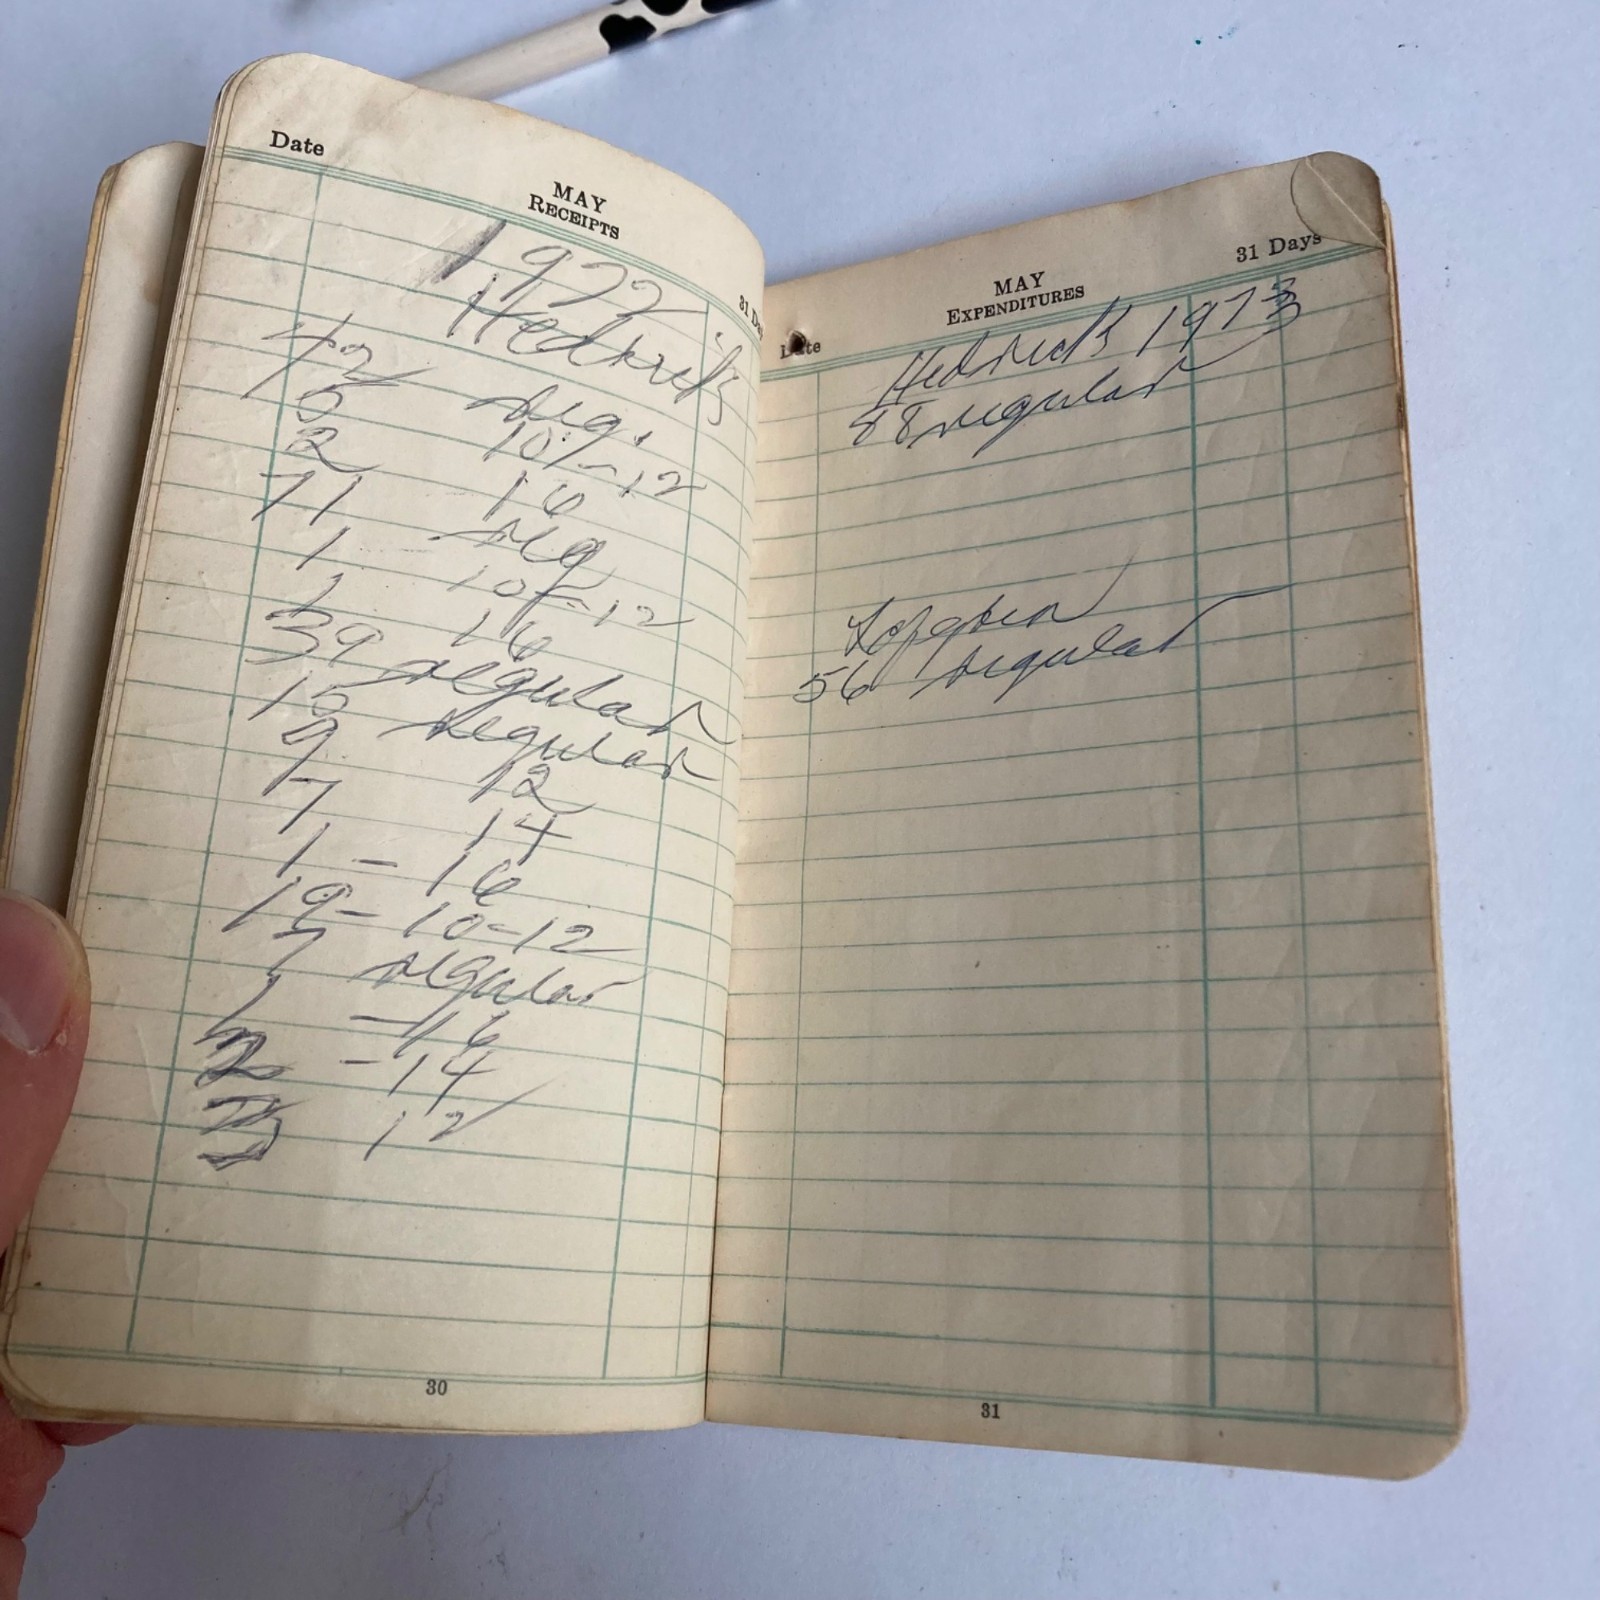 Date
MAY
RECEIPTS
31 Da
1972
Hedricks
42 reg.
5 10-12
2 16
71 reg
1 10-12
1 16
39 regular
15 regular
9 12
7 14
1 - 16
19- 10-12
7 regular
1 -16
2 -14
3 12
30
Date
MAY
EXPENDITURES
31 Days
Hedricks 1973
88 regular
56 regular
31